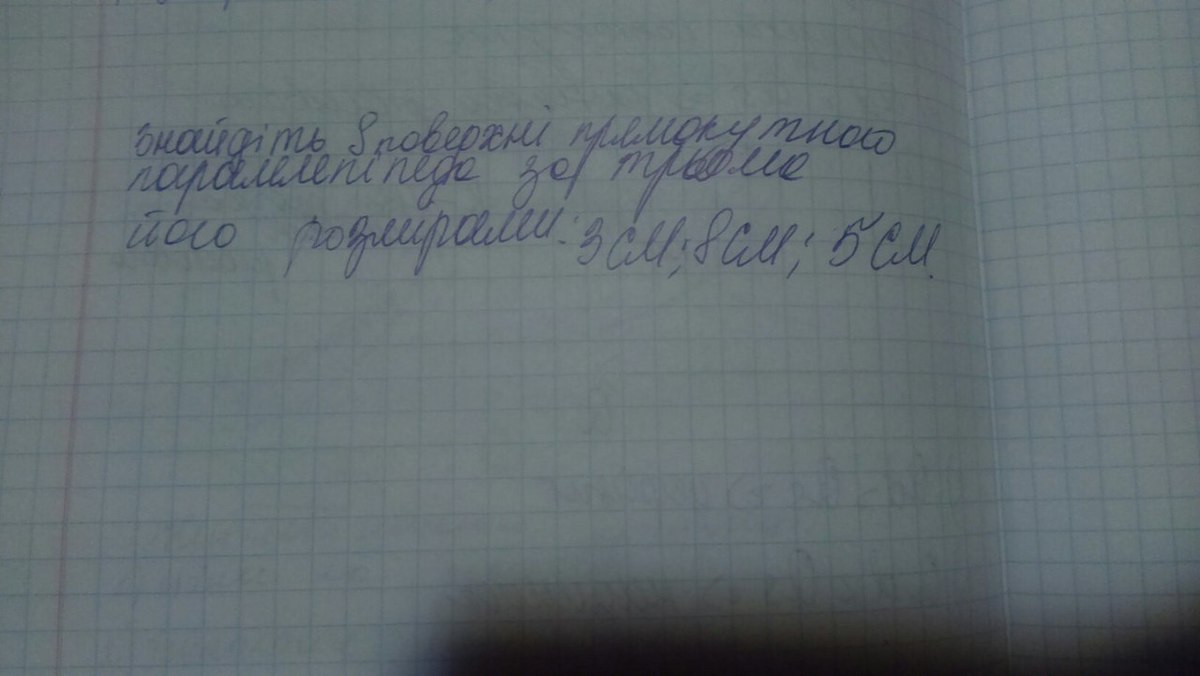 Знайдіть S поверхні прямокутного
паралелепіпеда за трьома
його розмирами: 3 см; 8 см; 5 см.